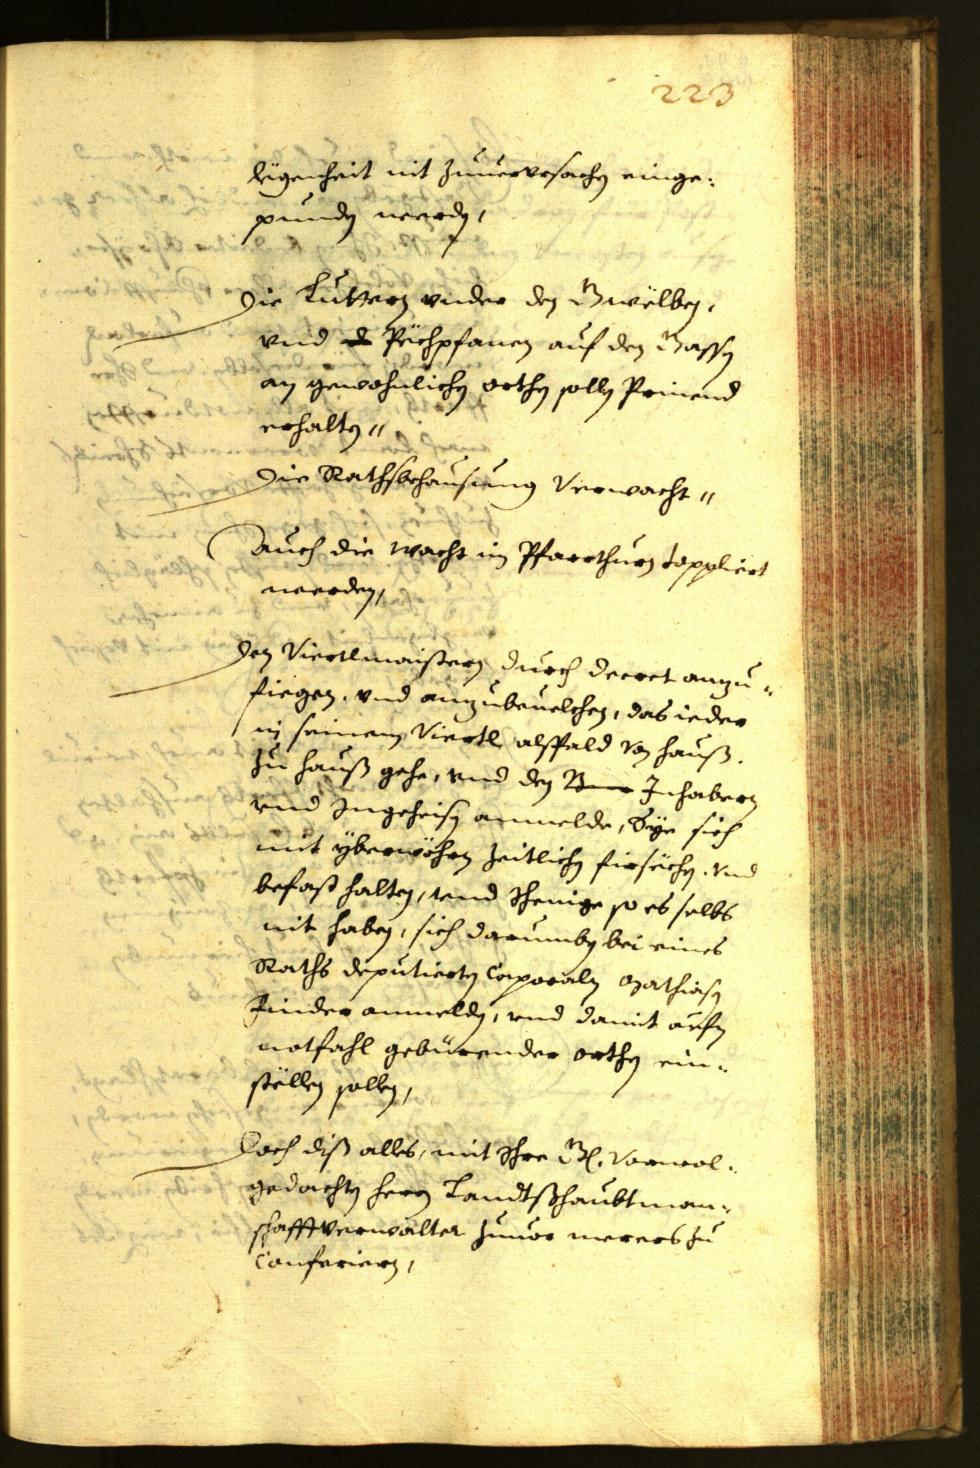 223
legenheit nit zuuerursachen einge¬
punden werden,
Die Luttern vnder den Gwelben,
vnd Pechpfanen auf den Gassen
an gewohnlichen orthen sollen Prinend
erhalten
Die Rathsbehausung verwacht
auch die wacht im Pfarrthurn doppliert
werden,
Den Viertlmaistern durch decret anzu¬
fiegen, vnd anzubeuelchen, das ieder
in seinem Viertl alspald von hauß
zu hauß gehe, vnd den Inhabern
vnd Ingeheisen anmelde, Sye sich
mit yberwöhren zeitlichen firsechen, vnd
befast halten, vnd Jhenige so es selbs
nit haben, sich darumben bei eines
Raths deputierten Caporaln Mathiasen
Finder anmelden, vnd damit aufn
notfahl gebürender orthen ein¬
stellen sollen,
Doch diß alles, mit Jhre Gl. vorwol¬
gedachten herrn Landtshaubtman¬
schafftverwalter zuuor merers zu
Conferiern,